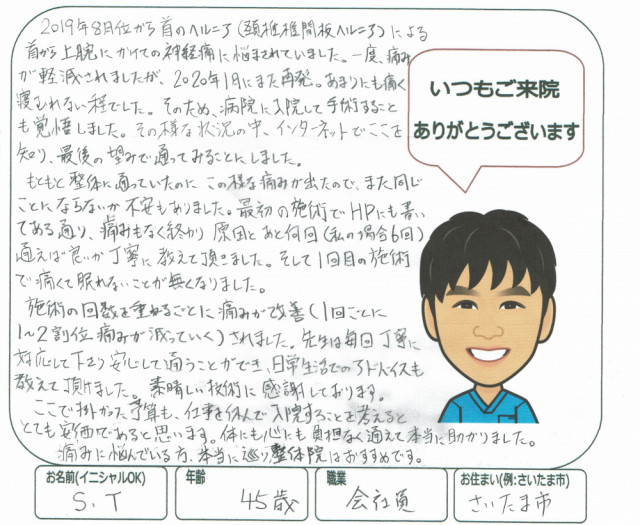 2019年8月位から首のヘルニア(頚椎椎間板ヘルニア)による
首から上腕にかけての神経痛に悩まされていました。一度、痛み
が軽減されましたが、2020年1月にまた再発。あまりにも痛く
寝むれない程でした。そのため、病院に入院して手術すること
も覚悟しました。その様な状況の中、インターネットでここを
知り、最後の望みで通ってみることにしました。
もともと整体に通っていたのにこの様な痛みが出たので、また同じ
ことにならないか不安もありました。最初の施術でHPにも書い
てある通り、痛みもなく終わり原因とあと何回(私の場合6回)
通えば良いか丁寧に教えて頂きました。そして1回目の施術
で痛くて眠れないことが無くなりました。
施術の回数を重ねるごとに痛みが改善(1回ごとに
1~2割位痛みが減っていく)されました。先生は毎回丁寧に
対応して下さり安心して通うことができ、日常生活でのアドバイスも
教えて頂けました。素晴しい技術に感謝しております。
ここで掛かった予算も、仕事を休んで入院することを考えると
とても安価であると思います。体にも心にも負担なく通えて本当に助かりました。
痛みに悩んでいる方、本当に巡り整体院はおすすめです。
いつもご来院
ありがとうございます
お名前(イニシャルOK) 年齢 職業 お住まい(例:さいたま市)
S.T 45歳 会社員 さいたま市